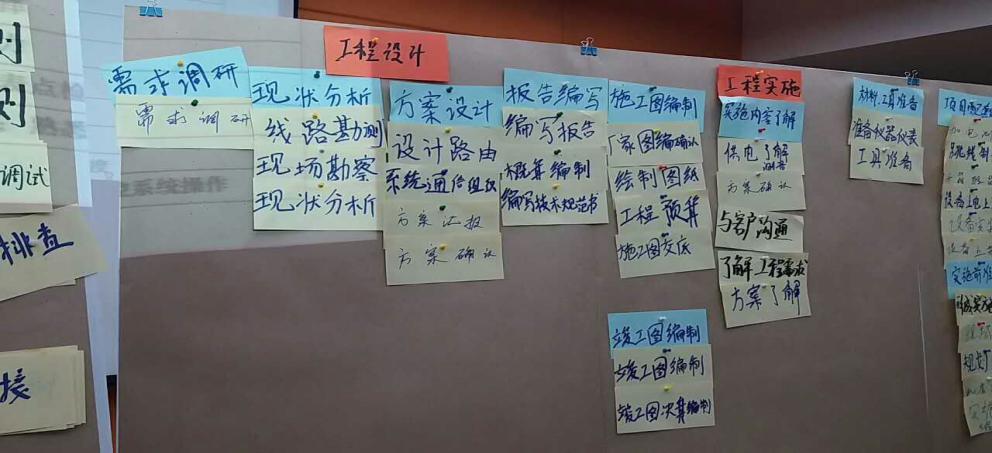 则
则
调试
排查
接
系统操作
工程设计
需求调研
需求调研
现状分析
线路勘测
现场勘察
现状分析
方案设计
设计路由
系统通信组织
方案汇报
方案确认
报告编写
编写报告
概算编制
编写技术规范书
施工图编制
厂家图编确认
绘制图纸
工程预算
施工图交底
竣工图编制
竣工图编制
竣工图决算编制
工程实施
实施内容了解
供电了解
方案确认
与客户沟通
了解工程需求
方案了解
材料、工具准备
准备仪器仪表
工具准备
项目
设备上电
实施前准